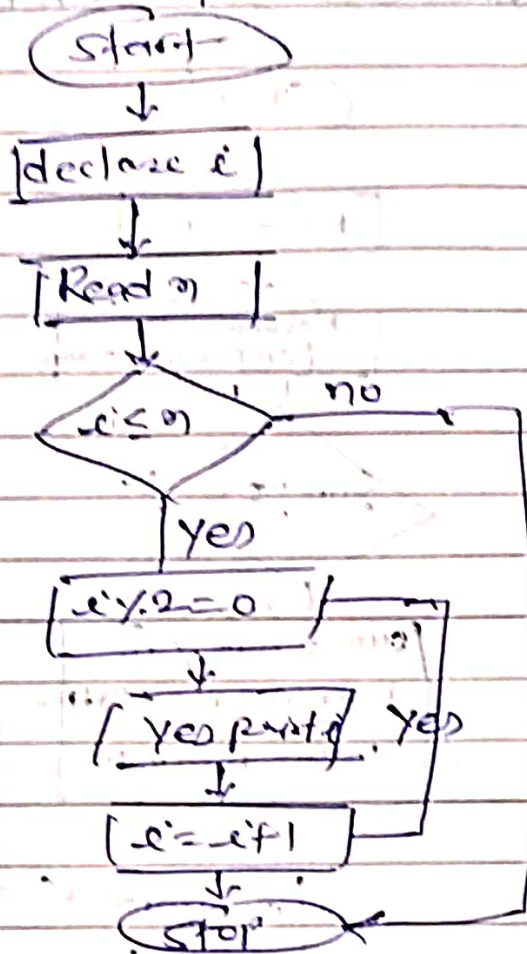 Start
declare i
Read n
i ≤ n
no
yes
i%2=0
Yes print i
Yes
i=i+1
Stop